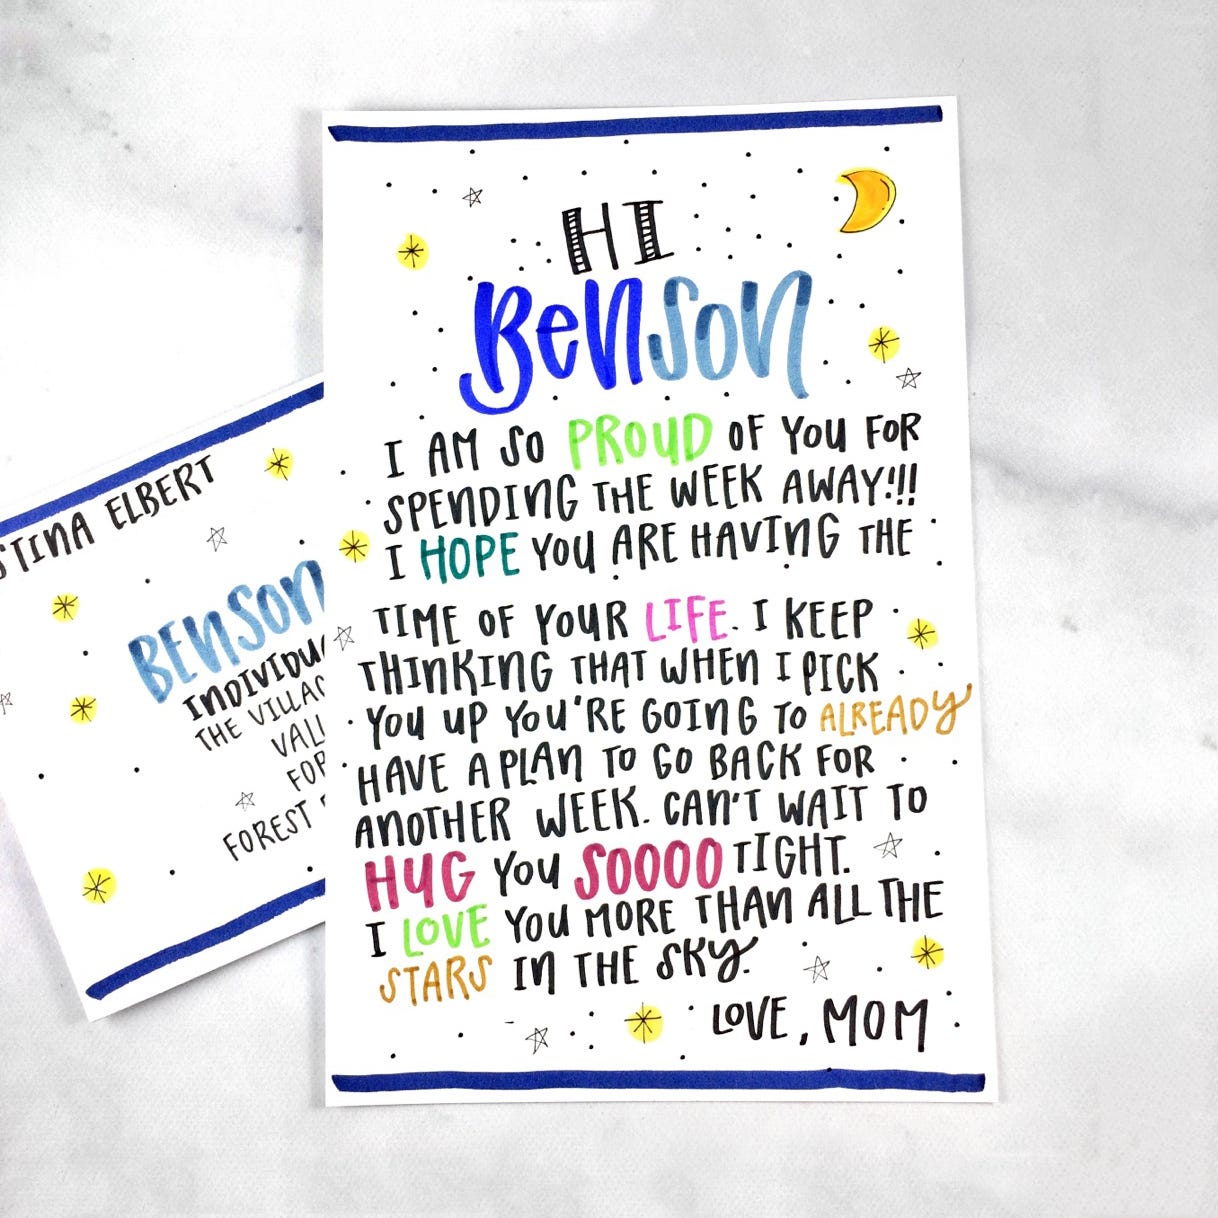 HI
BENSON
I AM SO PROUD OF YOU FOR
SPENDING THE WEEK AWAY!!!
I HOPE YOU ARE HAVING THE
TIME OF YOUR LIFE. I KEEP
THINKING THAT WHEN I PICK
YOU UP YOU'RE GOING TO ALREADY
HAVE A PLAN TO GO BACK FOR
ANOTHER WEEK. CAN'T WAIT TO
HUG YOU SOOOO TIGHT.
I LOVE YOU MORE THAN ALL THE
STARS IN THE SKY.
LOVE, MOM
STINA ELBERT
BENSON
INDIVIDU
THE VILLAG
VALL
FOR
FOREST